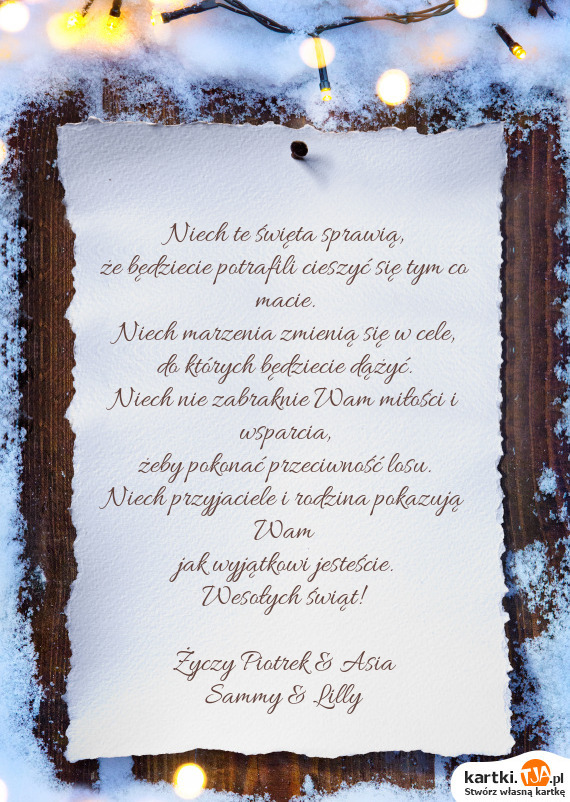 Niech te święta sprawią,
że będziecie potrafili cieszyć się tym co
macie.
Niech marzenia zmienią się w cele,
do których będziecie dążyć.
Niech nie zabraknie Wam miłości i
wsparcia,
żeby pokonać przeciwność losu.
Niech przyjaciele i rodzina pokazują
Wam
jak wyjątkowi jesteście.
Wesołych świąt!
Życzy Piotrek & Asia
Sammy & Lilly
kartki.TJA.pl
Stwórz własną kartkę